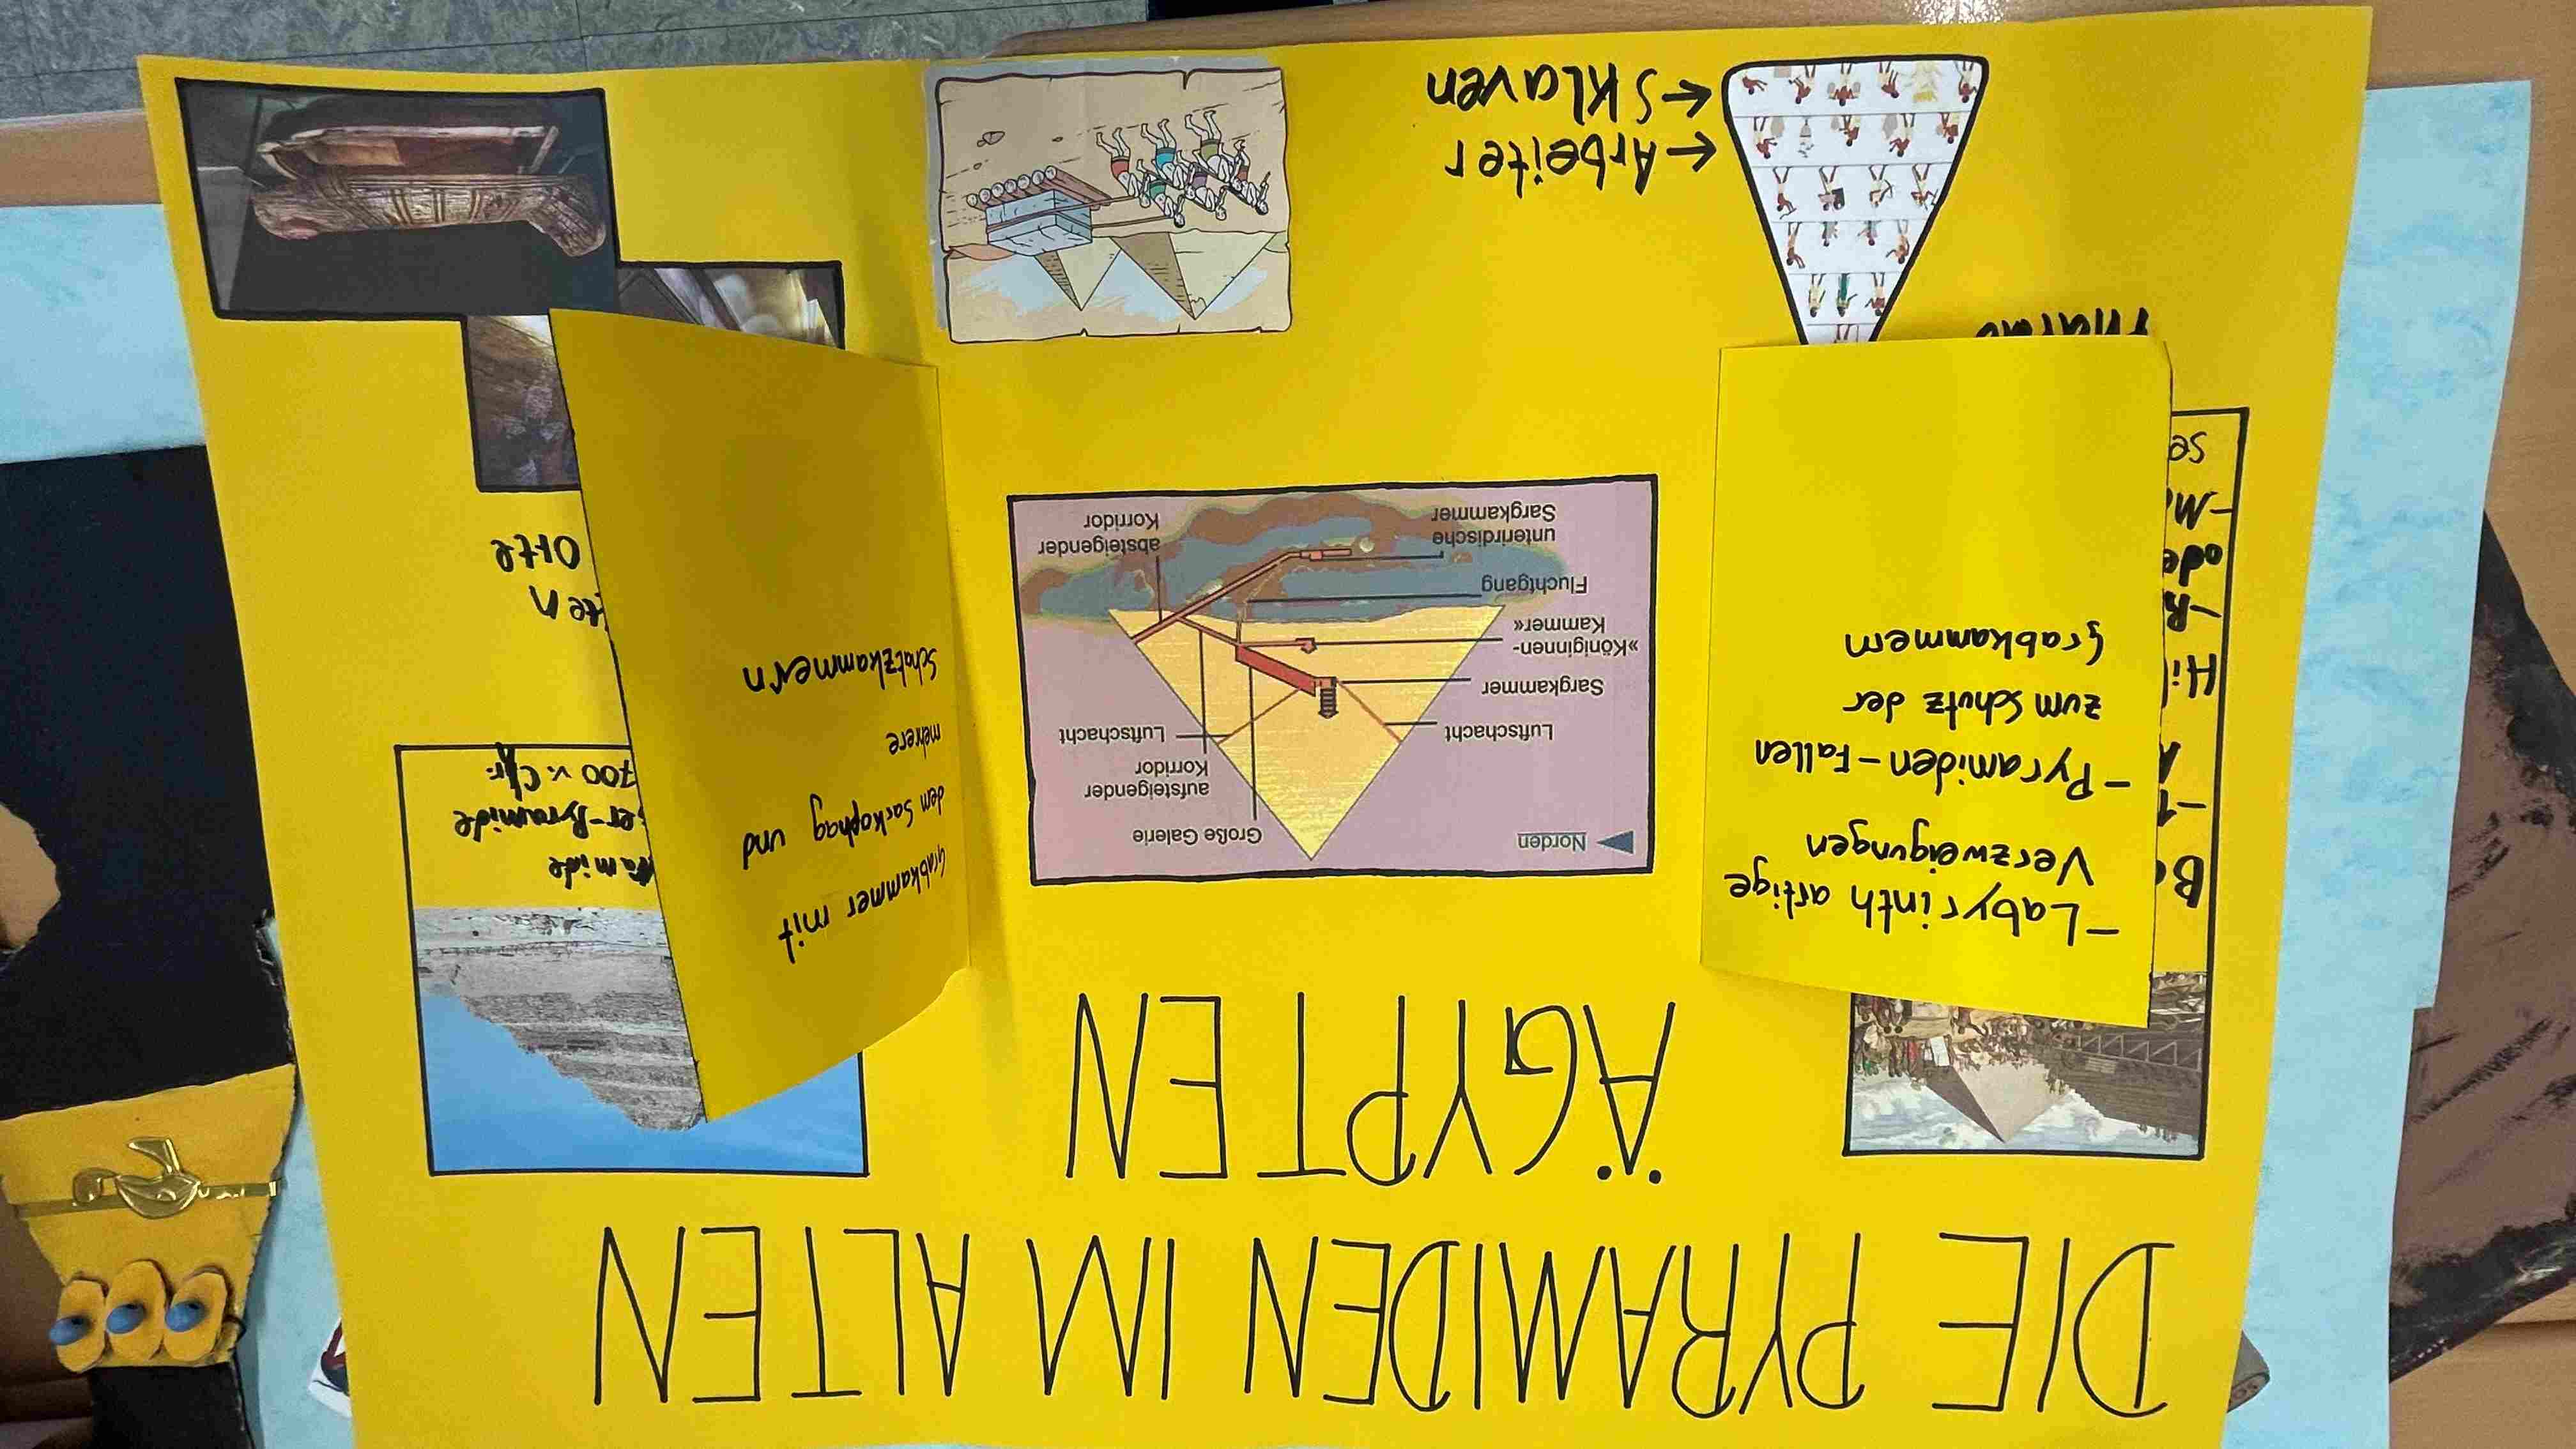 DIE PYRAMIDEN IM ALTEN
ÄGYPTEN
-Labyrinth artige
Verzweigungen
-Pyramiden-Fallen
zum Schutz der
Grabkammern
Norden
Große Galerie
aufsteigender
Korridor
Luftschacht
Luftschacht
Sargkammer
»Königinnen-
Kammer«
Fluchtgang
unterirdische
Sargkammer
absteigender
Korridor
Grabkammer mit
dem Sarkophag und
mehrere
Schatzkammern
700 v. Chr.
Orte
←Arbeiter
←Sklaven